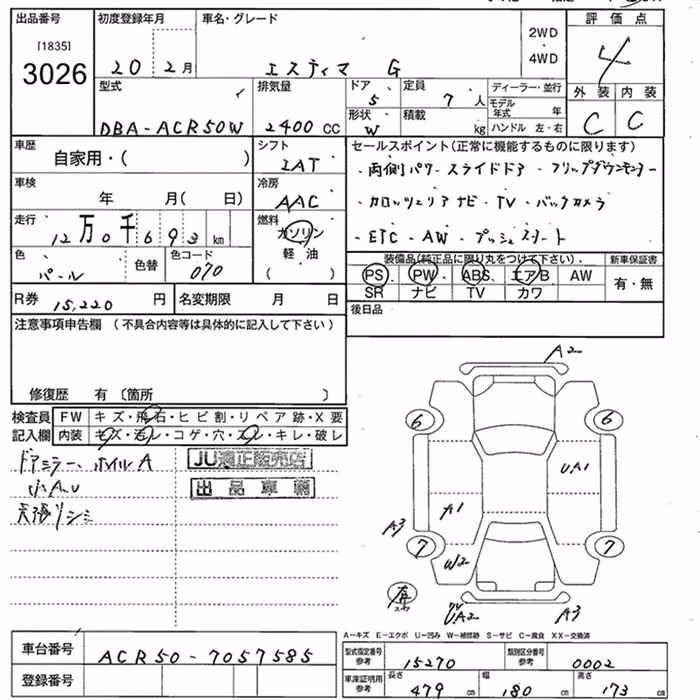 出品番号 初度登録年月 車名・グレード 評価点
[1835]
3026 20 2月 エスティマ G 2WD 4WD 4
型式 排気量 ドア 定員 ディーラー・並行 外装 内装
DBA-ACR50W 2400 CC 5 7人 モデル年式 年
形状 積載
W kg ハンドル 左・右 C C
車歴 シフト セールスポイント(正常に機能するものに限ります)
自家用・( ) IAT ・両側パワースライドドア・フリップダウンモニター
車検 冷房
年 月( 日) AAC ・カロッツェリアナビ・TV・バックカメラ
走行 燃料
12万0千693km ガソリン ・ETC・AW・プッシュスタート
色 色替 色コード 軽油 装備品(純正品に限り丸をつけて下さい) 新車保証書
パール 070 ( ) PS PW ABS エアB AW 有・無
SR ナビ TV カワ
R券 15,220円 名変期限 月 日
後日品
注意事項申告欄 (不具合内容等は具体的に記入して下さい)
修復歴 有 〔箇所 〕
検査員 FW キズ・飛石・ヒビ割・リペア跡・X要
記入欄 内装 キズ・汚レ・コゲ・穴・スレ・キレ・破レ
ドアミラー、ホイルA
小A.U
天張リシミ
JU適正販売店
出品車輌
A2
6 6
UA1
A1
A3
7 7
W2
UA2 A3
A-キズ E-エクボ U-凹み W-補修跡 S-サビ C-腐食 XX-交換済
車台番号 ACR50-7057585
登録番号
型式指定番号 参考 15270 類別区分番号 参考 0002
車庫証明用 参考 長さ 479 cm 幅 180 cm 高さ 173 cm